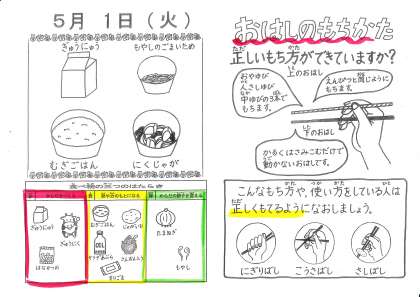 5月 1日(火)
ぎゅうにゅう
もやしのごまいため
むぎごはん
にくじゃが
食べ物の三つのはたらき
ぎゅうにゅう
ぎゅうにく
むぎごはん
じゃがいも
さとう
こんにゃく
たまねぎ
もやし
おはしのもちかた
正しいもち方ができていますか?
上のおはし
おやゆび
人さしゆび
中ゆびの3本で
もちます。
えんぴつと同じように
もちます。
下のおはし
かるくはさみこむだけで
動かないおはしです。
こんなもち方や、使い方をしている人は
正しくもてるようになおしましょう。
にぎりばし
こうさばし
さしばし